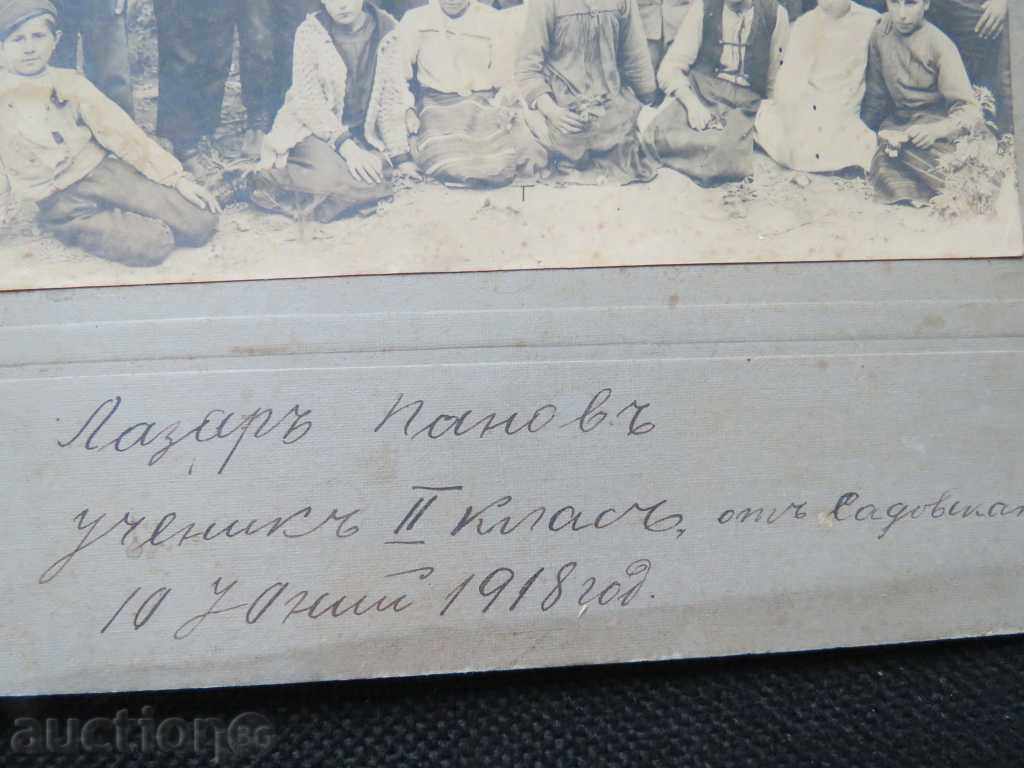 Лазаръ Пановъ
ученикъ II класъ, отъ Садовската
10 Юний 1918 год.
auction BG